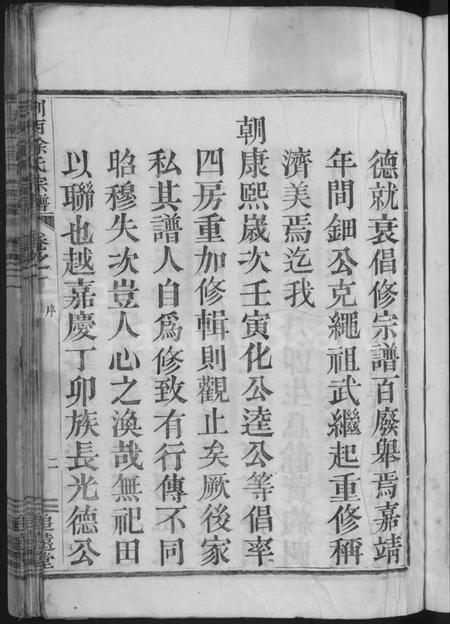 德就衰倡修宗譜百廢舉焉嘉靖
年間鈿公克繩祖武繼起重修稱
濟美焉迄我
朝康熙歲次壬寅化公逵公等倡率
四房重加修輯則觀止矣厥後家
私其譜人自爲修致有行傳不同
昭穆失次豈人心之渙哉無祀田
以聯也越嘉慶丁卯族長光德公
徐氏宗譜
卷之一
序
二
追遠堂